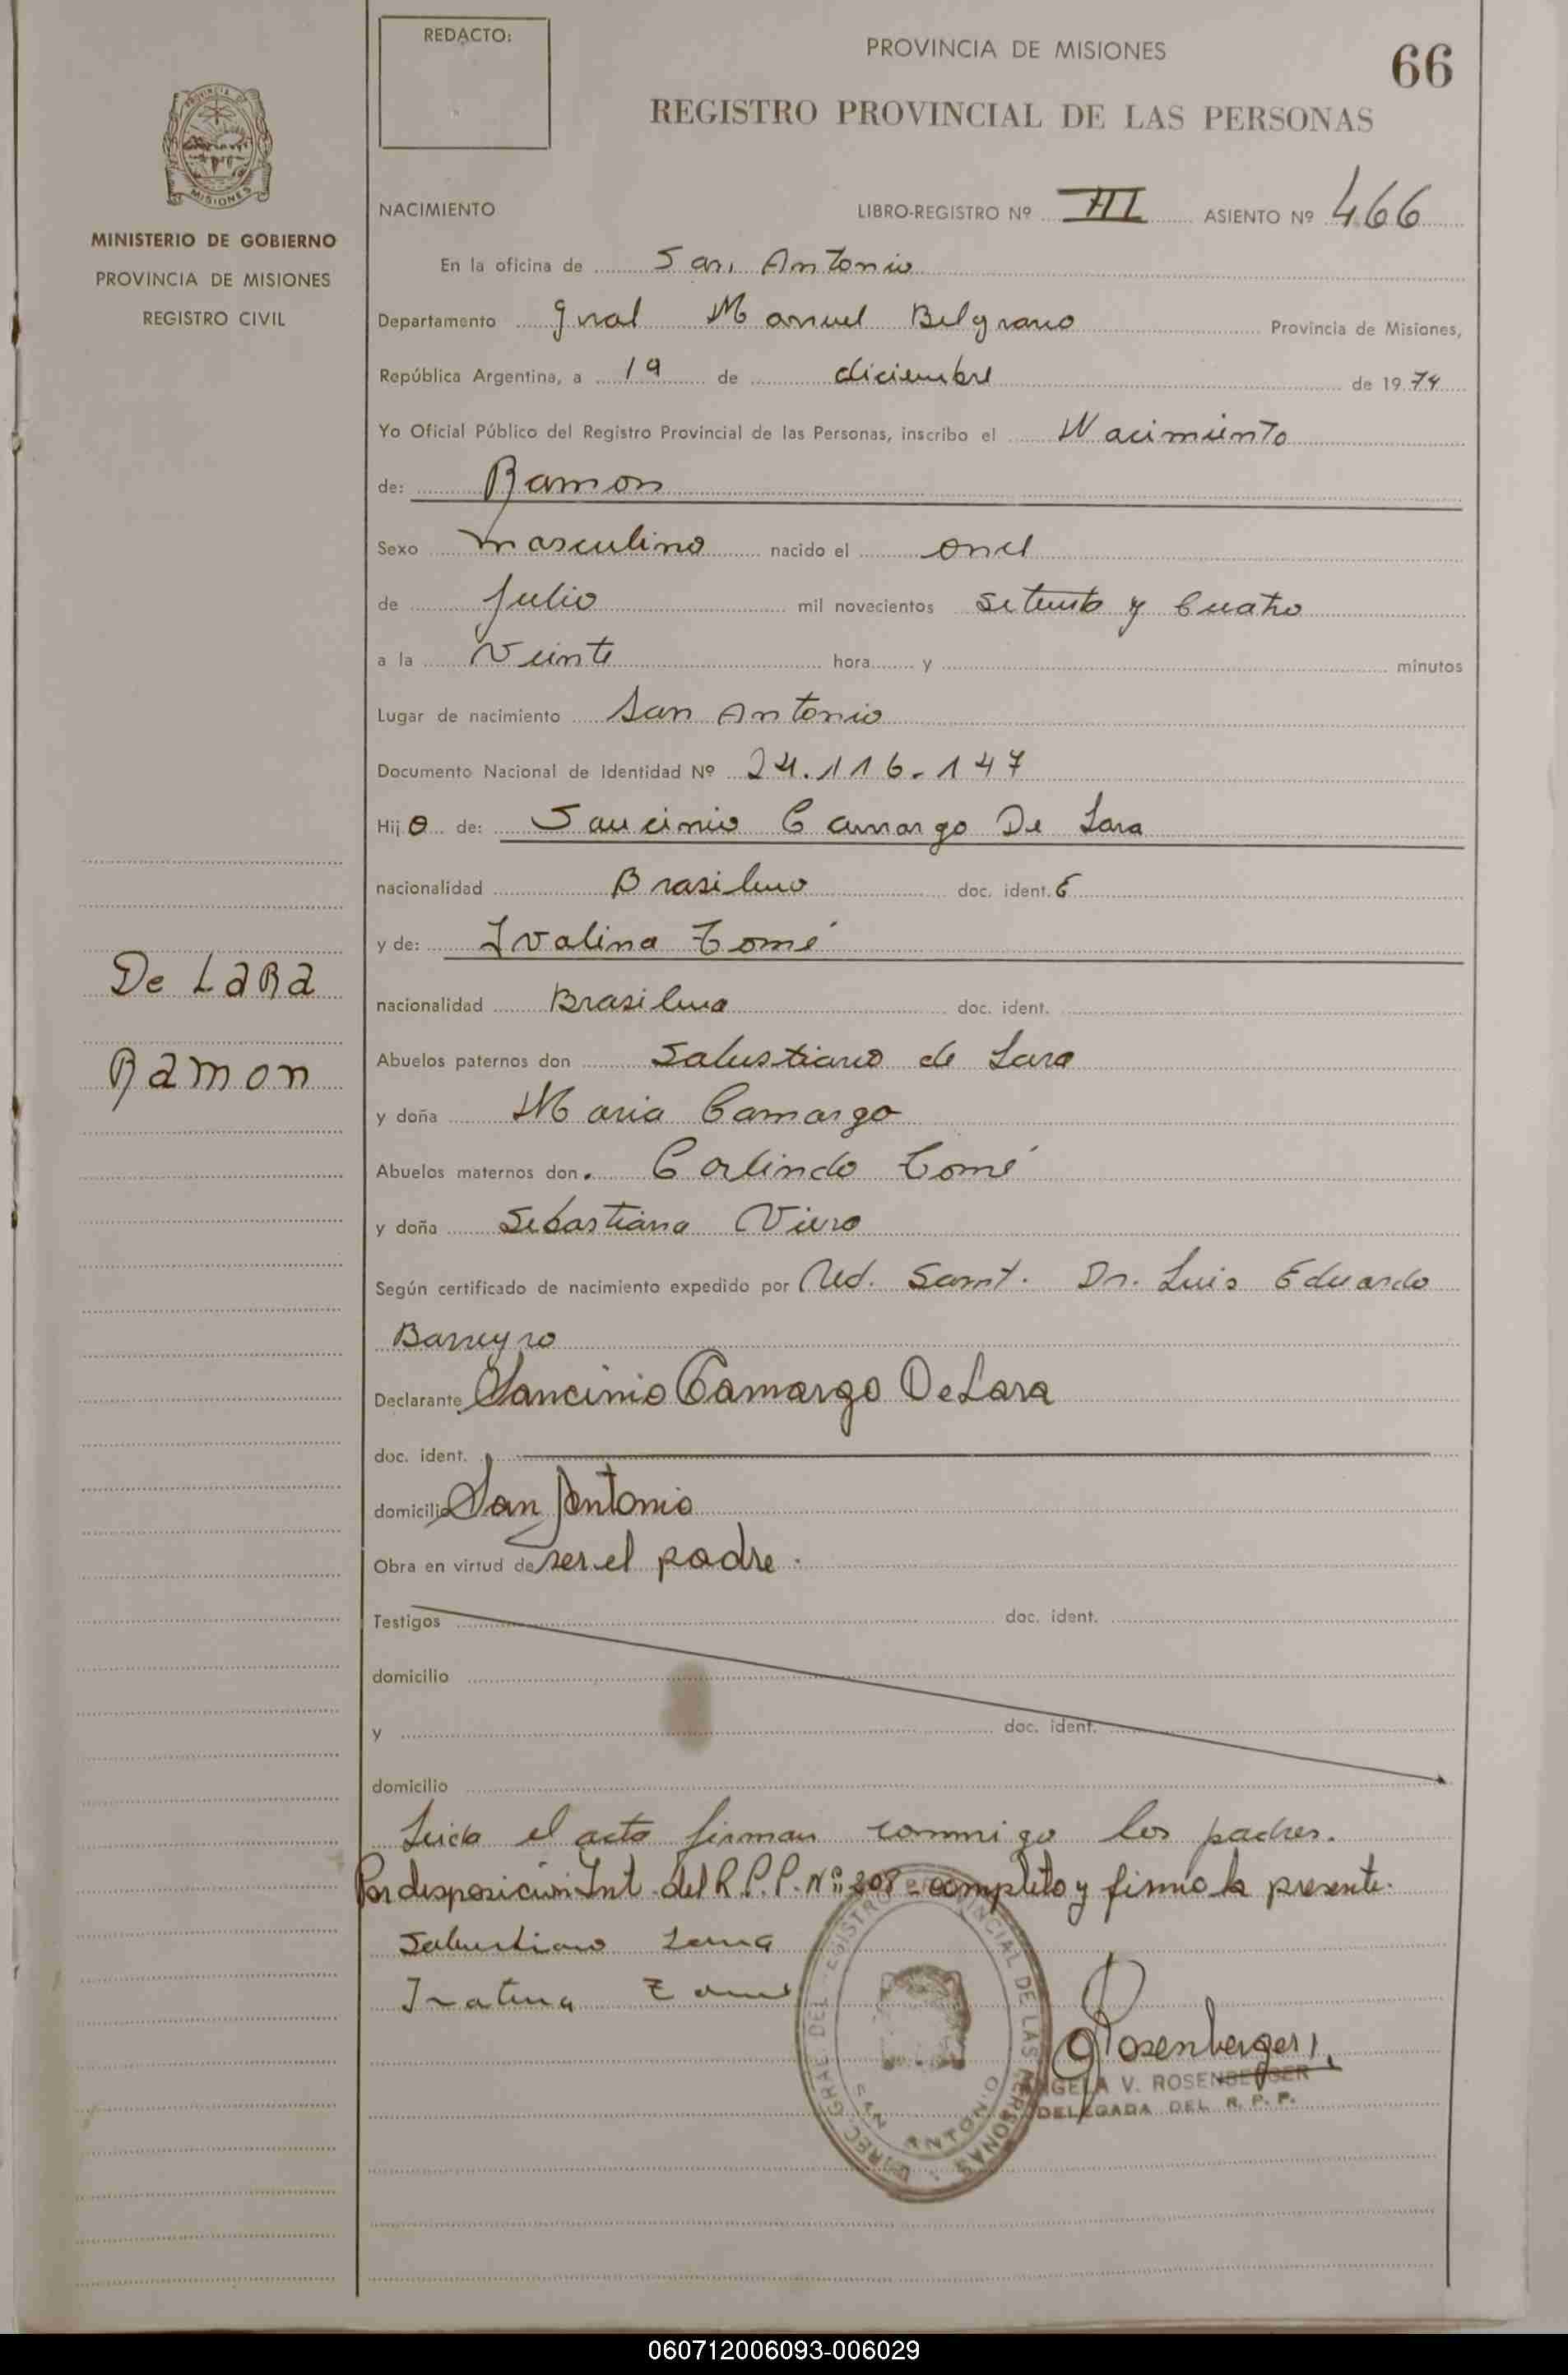 REDACTO:
PROVINCIA DE MISIONES
66
REGISTRO PROVINCIAL DE LAS PERSONAS
MISIONES
MINISTERIO DE GOBIERNO
PROVINCIA DE MISIONES
REGISTRO CIVIL
NACIMIENTO LIBRO-REGISTRO Nº III ASIENTO Nº 466
En la oficina de San Antonio
Departamento Gral Manuel Belgrano Provincia de Misiones,
República Argentina, a 19 de diciembre de 1974
Yo Oficial Público del Registro Provincial de las Personas, inscribo el Nacimiento
de: Ramon
Sexo masculino nacido el once
de Julio mil novecientos setenta y cuatro
a la Veinte hora y minutos
Lugar de nacimiento San Antonio
Documento Nacional de Identidad Nº 24.116.147
Hijo de: Saucinio Camargo De Lara
nacionalidad Brasileno doc. ident.
y de: Ivalina Tomé
De Lara
nacionalidad Brasilena doc. ident.
Ramon
Abuelos paternos don Salustiano de Lara
y doña Maria Camargo
Abuelos maternos don. Carlindo Tomé
y doña Sebastiana
Según certificado de nacimiento expedido por Ud. Sanit. Dr. Luis Eduardo
Barreyro
Declarante Sancinio Camargo De Lara
doc. ident.
domicilio San Antonio
Obra en virtud de ser el padre.
Testigos doc. ident.
domicilio
y doc. ident.
domicilio
Leida el acta firman conmigo los padres.
Por disposición Int. del R.P.P. Nº: 208 - completo y firmo la presente.
Salustiano Lara
Tome
DIREC. GRAL. DEL REGISTRO PROVINCIAL DE LAS PERSONAS
SAN ANTONIO
Rosenberger
ANGELA V. ROSENBERGER
DELEGADA DEL R. P. P.
060712006093-006029